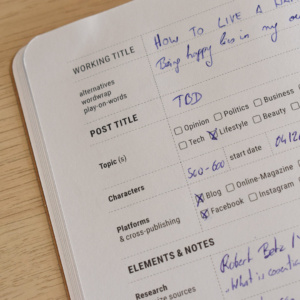 WORKING TITLE HOW TO LIVE A
alternatives
wordwrap
play-on-words
Being happy in my
POST TITLE TBD
Topic (s) Opinion Politics Business
Tech Lifestyle Beauty
Characters 500-600 start date 04/2
Platforms
& cross-publishing
Blog Online-Magazine
Facebook Instagram
ELEMENTS & NOTES
Research Robert
sources
What is